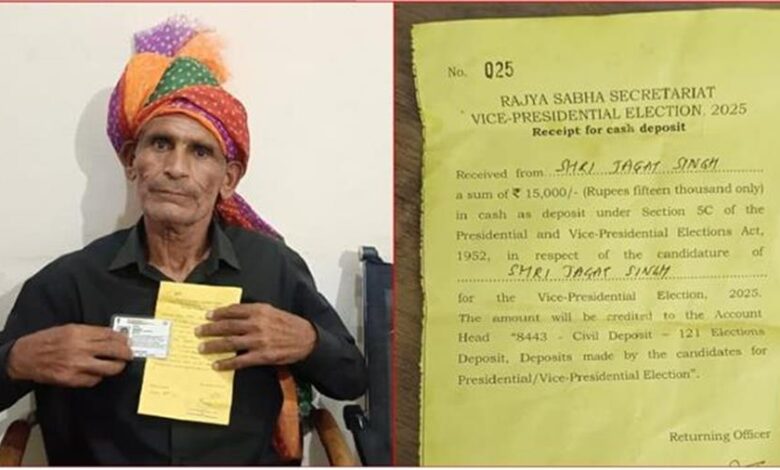 No. 025
RAJYA SABHA SECRETARIAT
VICE-PRESIDENTIAL ELECTION, 2025
Receipt for cash deposit
Received from SHRI JAGAT SINGH
a sum of ₹ 15,000/- (Rupees fifteen thousand only)
in cash as deposit under Section 5C of the
Presidential and Vice-Presidential Elections Act,
1952, in respect of the candidature of
SHRI JAGAT SINGH
for the Vice-Presidential Election, 2025.
The amount will be credited to the Account
Head "8443 - Civil Deposit - 121 Elections
Deposit, Deposits made by the candidates for
Presidential/Vice-Presidential Election".
Returning Officer